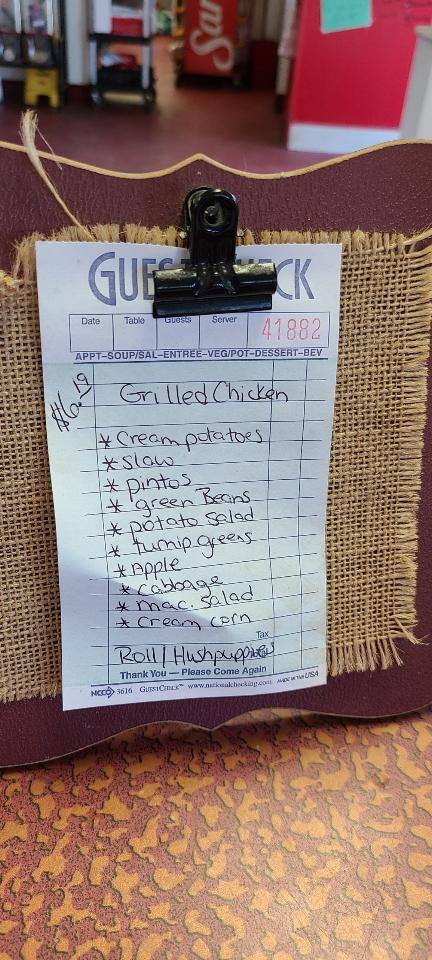 San
GUEST CHECK
Date Table Guests Server 41882
APPT-SOUP/SAL-ENTREE-VEG/POT-DESSERT-BEV
$6.19
Grilled Chicken
* Cream potatoes
* slaw
* pintos
* green Beans
* potato salad
* turnip greens
* Apple
* cabbage
* mac. salad
* cream corn
Tax
Roll/Hushpuppies
Thank You — Please Come Again
NCCO 3616 GUESTCHECK™ www.nationalchecking.com MADE IN THE USA